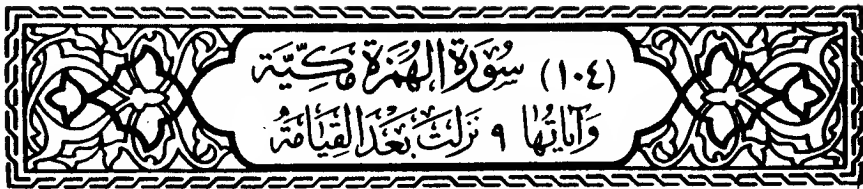 (١٠٤) سُورَةُ الْهُمَزَةِ مَكِّيَّة
وَآيَاتُهَا ٩ نَزَلَتْ بَعْدَ القِيَامَةِ